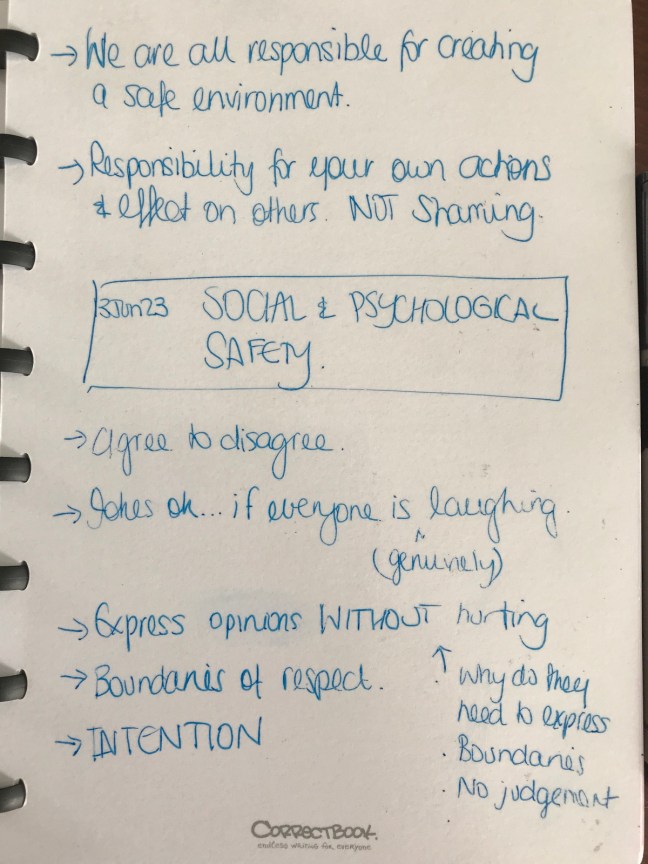 → We are all responsible for creating
a safe environment.
→ Responsibility for your own actions
& effect on others. NOT Shaming.
3Jun23 SOCIAL & PSYCHOLOGICAL
SAFETY.
→ Agree to disagree.
→ Jokes ok... if everyone is laughing.
^
(genuinely)
→ Express opinions WITHOUT hurting
→ Boundaries of respect.
→ INTENTION
↑
· Why do they
need to express
· Boundaries
· No judgement
CORRECTBOOK.
endless writing for everyone